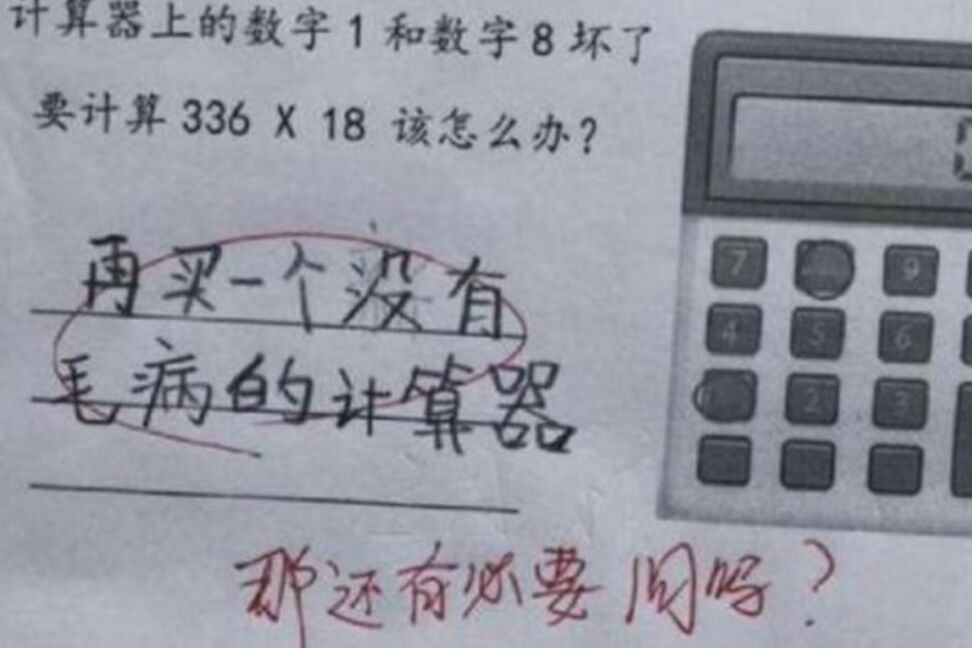 计算器上的数字 1 和数字 8 坏了
要计算 336 X 18 该怎么办?
再买一个没有
毛病的计算器
那还有必要问吗?
7
9
4 5 6
2 3